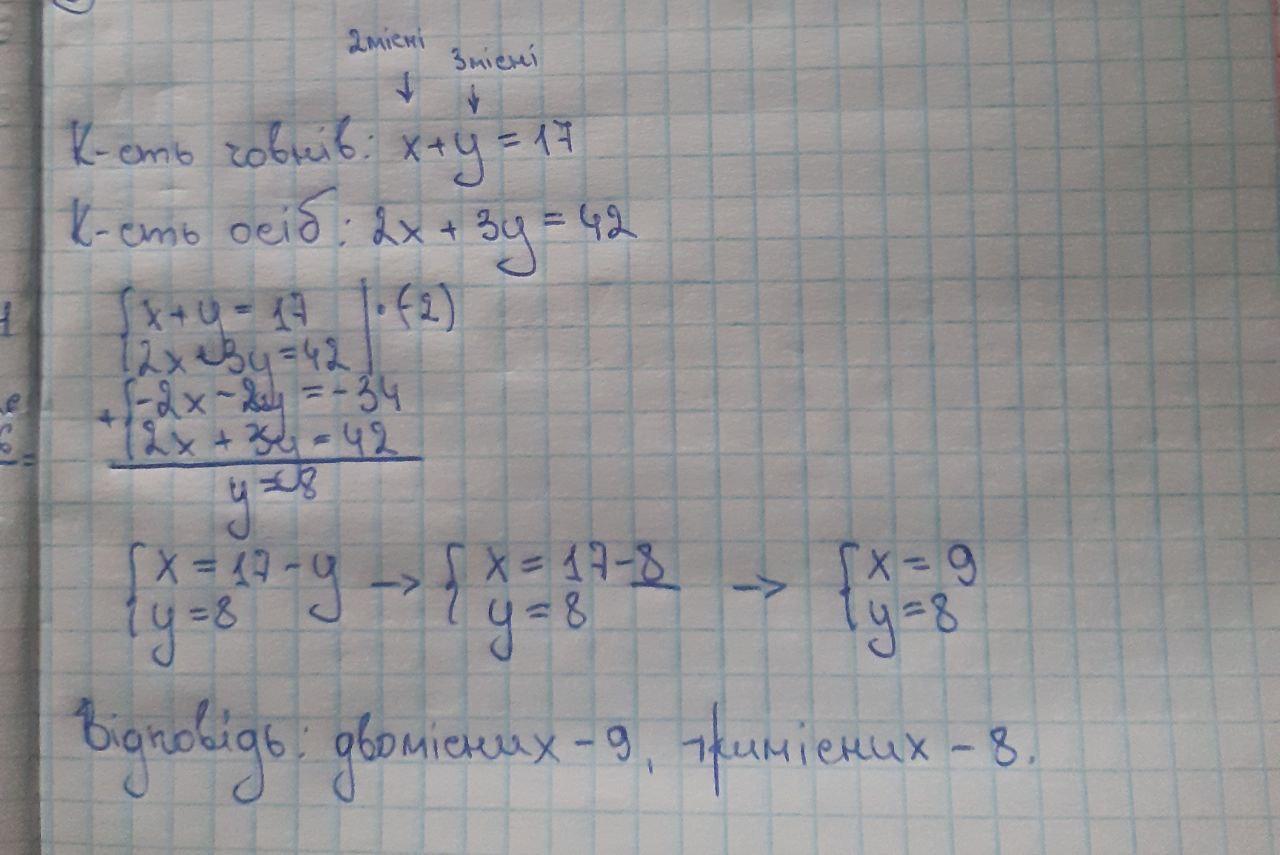 2місні
3місні
↓ ↓
К-сть човнів: x+y = 17
К-сть осіб: 2x + 3y = 42
{x+y = 17 |·(-2)
{2x+3y=42 |
+{-2x-2y = -34
{2x + 3y = 42
y = 8
{x = 17-y → {x = 17-8 → {x = 9
{y=8 {y = 8 {y = 8
Відповідь: двомісних - 9, тримісних - 8.